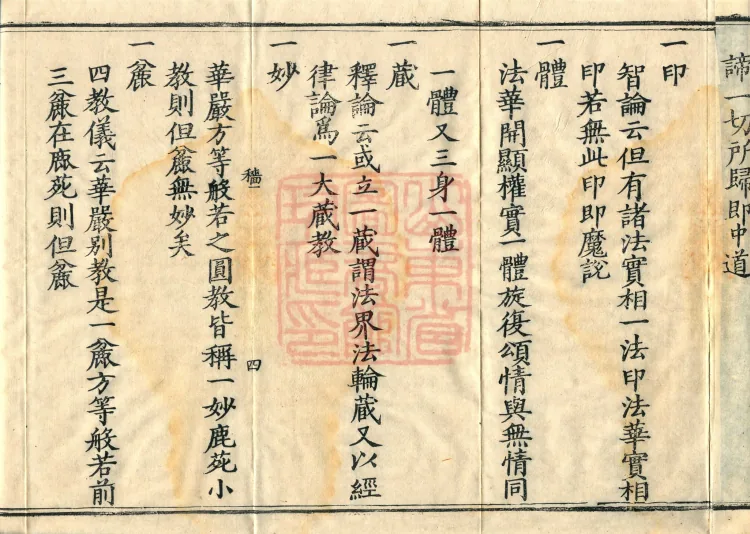 諦一切所歸即中道
一印
智論云但有諸法實相一法印法華實相
印若無此印即魔說
一體
法華開顯權實一體旋復頌情與無情同
一體又三身一體
一蔵
釋論云或立一蔵謂法界法輪蔵又以經
律論爲一大蔵教
一妙
華嚴方等般若之圓教皆稱一妙鹿苑小
穡一 四
教則但麁無妙矣
一麁
四教儀云華嚴别教是一麁方等般若前
三麁在鹿苑則但麁